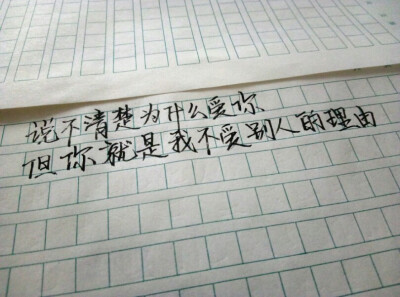 说不清楚为什么爱你
但你就是我不爱别人的理由